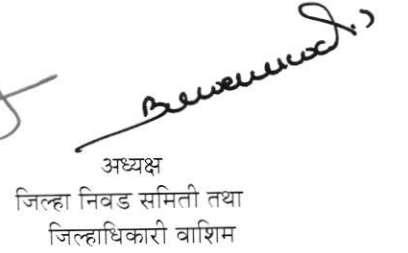 अध्यक्ष
जिल्हा निवड समिती तथा
जिल्हाधिकारी वाशिम